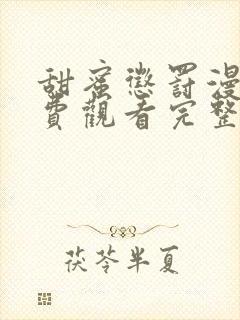 甜蜜懲罰漫
費觀看完整
茯苓半夏